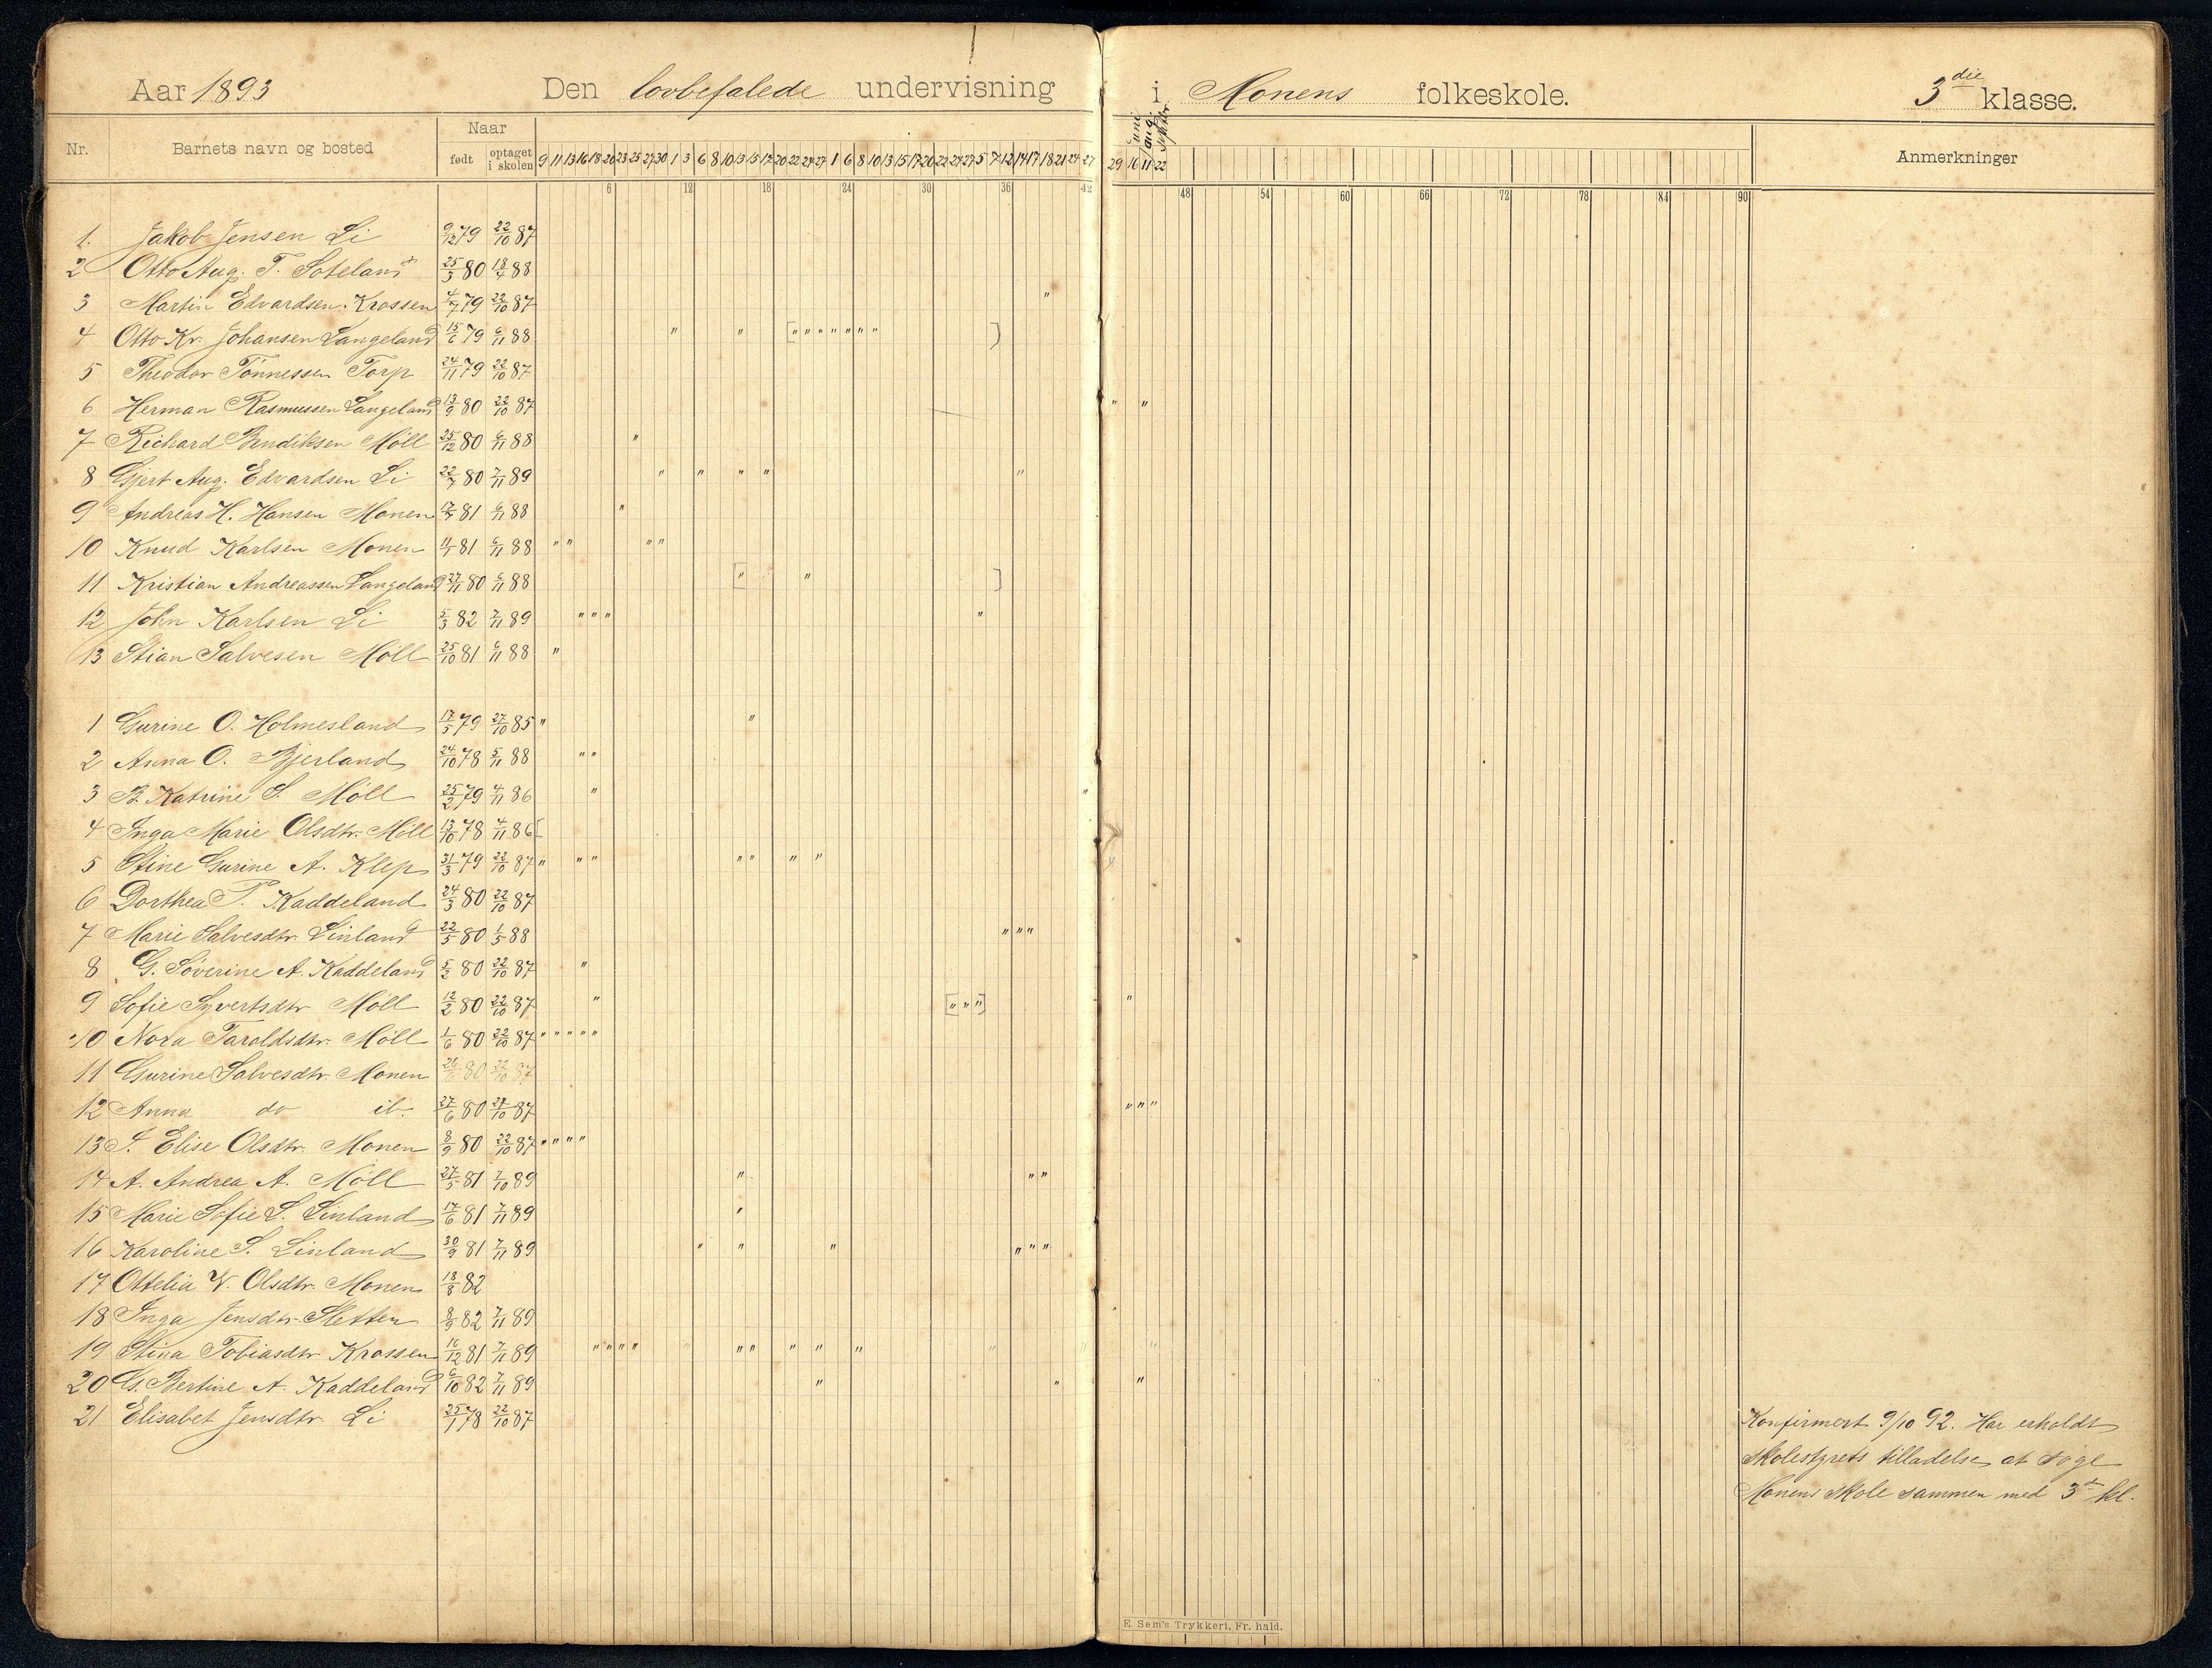 Aar 1893 Den lovbefalede undervisning i Monens folkeskole. 3die klasse.
Nr. Barnets navn og bosted Naar født optaget i skolen Anmerkninger
juni aug. septbr
9 11 13 16 18 20 23 25 27 30 1 3 6 8 10 13 15 17 20 22 24 27 1 6 8 10 13 15 17 20 22 24 27 5 7 12 14 17 18 21 24 27 29 16 11 22
6 12 18 24 30 36 42 48 54 60 66 72 78 84 90
1. Jakob Jensen Li 9/12 79 22/10 87
2 Otto Aug. T. Soteland 25/3 80 18/4 88
3 Martin Edvardsen Krossen 4/7 79 22/10 87 "
4 Otto Kr. Johansen Langeland 15/6 79 6/11 88 " " [" " " " " " " )
5 Theodor Tønnessen Torp 24/11 79 22/10 87
6 Herman Rasmussen Langeland 13/9 80 22/10 87 " "
7 Richard Bendiksen Möll 25/12 80 6/11 88 "
8 Gjert Aug. Edvardsen Li 22/7 80 7/11 89 " " " " "
9 Andreas H. Hansen Monen 17/7 81 6/11 88 "
10 Knud Karlsen Monen 11/1 81 6/11 88 " " " "
11 Kristian Andreassen Langeland 27/11 80 6/11 88 [" " ]
12 John Karlsen Li 5/3 82 7/11 89 " " " "
13 Stian Salvesen Möll 25/10 81 6/11 88 "
1 Gurine O. Holmesland 17/5 79 27/10 85 " "
2 Anna O. Bjerland 24/10 78 5/11 88 " "
3 B. Katrine S. Möll 25/2 79 4/11 86 " "
4 Inga Marie Olsdtr. Möll 13/10 78 4/11 86 [
5 Stine Gurine A. Klep 31/3 79 22/10 87 " " " " " " "
6 Dorthea T. Kaddeland 24/3 80 22/10 87
7 Marie Salvesdtr. Linland 22/5 80 1/5 88 " " "
8 G. Søverine A. Kaddeland 5/2 80 22/10 87 "
9 Sofie Syvertsdtr Möll 12/2 80 22/10 87 " [" " "] "
10 Nora Taroldsdtr. Möll 1/6 80 22/10 87 " " " " "
11 Gurine Salvesdtr. Monen 26/6 80 22/10 87
12 Anna do ib. 27/6 80 22/10 87 " " "
13 I. Elise Olsdtr. Monen 8/9 80 22/10 87 " " " "
14 A. Andrea A. Möll 27/5 81 7/10 89 " " "
15 Marie Sofie S. Linland 17/6 81 7/11 89 "
16 Karoline S. Linland 30/9 81 7/11 89 " " " " " "
17 Ottelia V. Olsdtr. Monen 18/8 82
18 Inga Jensdtr. Sletten 8/9 82 7/11 89
19 Stina Tobiasdtr Krossen 16/12 81 7/11 89 " " " " " " " " " " " "
20 G. Bertine A. Kaddeland 6/10 82 7/11 89 " " "
21 Elisabet Jensdtr. Li 25/1 78 22/10 87 Konfirmert 9/10 92. Har erholdt
skolestyrets tilladelse at søge
Monens skole sammen med 3d kl.
E. Sem's Trykkeri, Fr. hald.